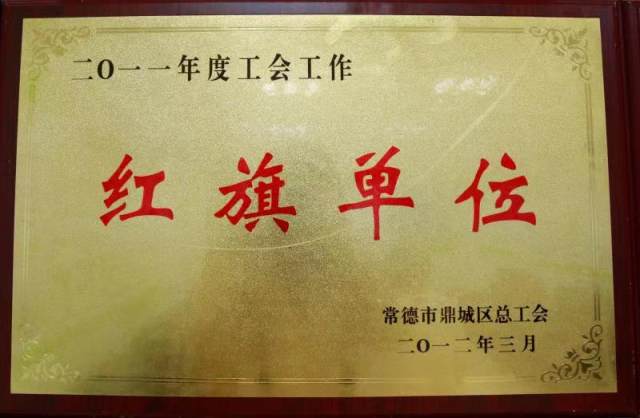 二O一一年度工会工作
红旗单位
常德市鼎城区总工会
二O一二年三月